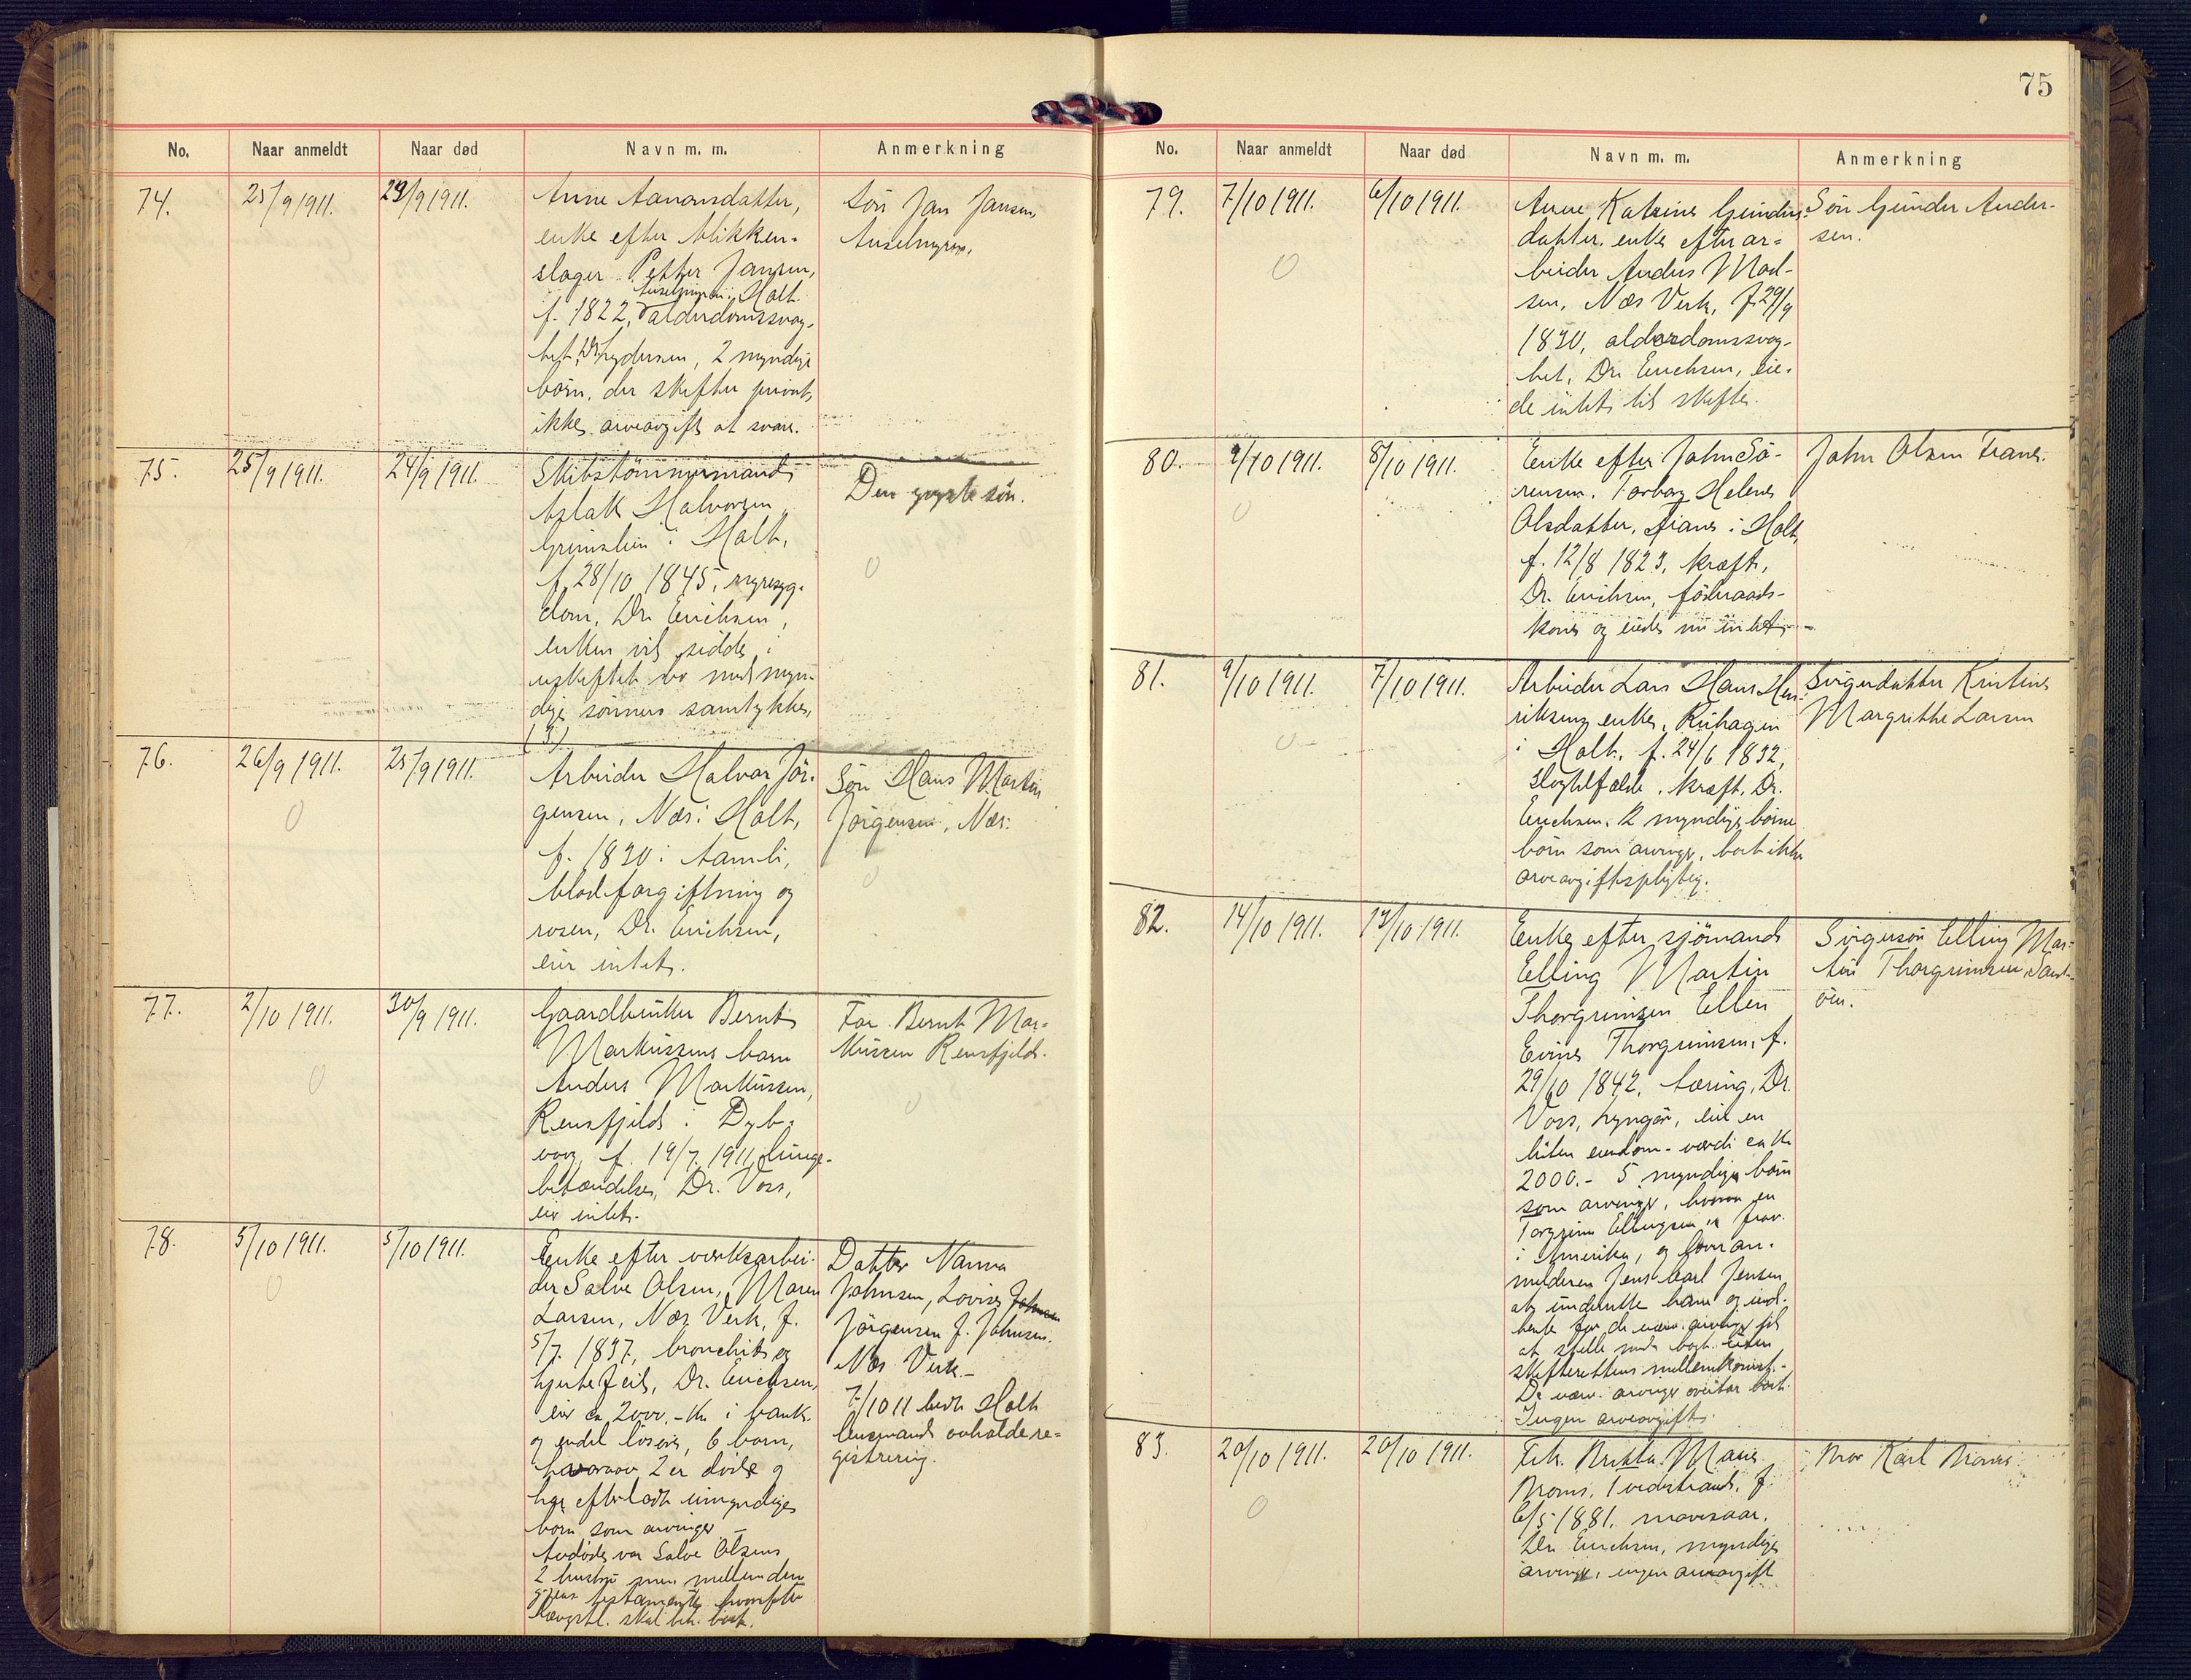 75
No. Naar anmeldt Naar død Navn m. m. Anmerkning
74. 25/9 1911. 23/9 1911.
Anne Aanonsdatter,
enke efter blikken-
slager Petter Jansen,
i Holt
f. 1822, alderdomssvag-
het, Dr. 2 myndige
børn, der skifter privat,
ikke arveavgift at svare.
Søn Jan Jansen,
75. 25/9 1911. 24/9 1911.
Skibstømmermand
Aslak Halvorsen
Grimslien i Holt,
f. 28/10 1845, nyresyg-
dom, Dr. Erichsen,
enken vil sidde i
uskiftet bo med myn-
dige sønners samtykke,
(3)
Den yngste søn.
0
76. 26/9 1911. 25/9 1911.
0
Arbeider Halvor Jør-
gensen, Næs i Holt,
f. 1830 i Aamli,
blodforgiftning og
rosen, Dr. Erichsen,
eier intet.
Søn Hans Martin
Jørgensen, Næs.
0
77. 2/10 1911. 30/9 1911.
0
Gaardbruker Bernt
Markussens barn
Anders Markussen,
Rensfjeld i Dyb-
vaag, f. 19/7 1911, lunge-
betændelse, Dr. Voss,
eier intet.
Far Bernt Mar-
kussen Rensfjeld.
0
78. 5/10 1911. 5/10 1911.
0
Enke efter verksarbei-
der Salve Olsen, Maren
Larsen, Næs Verk, f.
5/7 1837, bronchit og
hjertefeil, Dr. Erichsen,
eier ca 2000.- kr i bank
og endel løsøre, 6 barn,
hvorav 2 er døde og
har efterladt umyndige
børn som arvinger -
Avdøde var Salve Olsens
2 hustru men mellem dem
testamente hvorefter
længstl. skal beh. boet.
Datter Nanna
Johnsen, Lovise Johnsen
Jørgensen f. Johnsen.
Næs Verk.-
7/10 11 bedt Holt
lensmand avholde re-
gistrering.
No. Naar anmeldt Naar død Navn m. m. Anmerkning
79. 7/10 1911. 6/10 1911.
0
Anne Katrine Gunders-
datter, enke efter ar-
beider Anders Mad-
sen, Næs Verk, f. 29/9
1830, alderdomssvag-
het, Dr. Erichsen, eie-
de intet til skifte.
Søn Gunder Ander-
sen.
80. 9/10 1911. 8/10 1911.
0
Enke efter John Sø-
rensen, Torborg Helene
Olsdatter, Fiane i Holt,
f. 12/8 1823, kræft,
Dr. Erichsen, føderaads-
kone og eiede nu intet -
John Olsen Fiane.
81. 9/10 1911. 7/10 1911.
0
Arbeider Lars Hans Hen-
riksens enke, i Holt, f. 24/6 1832,
kræft, Dr.
Erichsen. 2 myndige børne
børn som arvinger, boet ikke
arveavgiftspligtig.
Svigerdatter Kristine
Margrethe Larsen
82. 14/10 1911. 13/10 1911.
Enke efter sjømand
Elling Martin
Thorgrimsen Ellen
Thorgrimsen, f.
29/10 1842, tæring, Dr.
Voss, Lyngør, eiet en
liten eiendom - værdi ca kr
2000.- 5 myndige børn
som arvinger, hvorav en
Torgrim Ellingsen er frav.
i Amerika, og lover an-
melderen Jens Carl Jensen
at underrette ham og ind-
hente for de nærv. arvinger
at skifte uten
skifterettens mellemkomst.-
De nærv. arvinger overtar boet.
Ingen arveavgift.
Svigersøn Elling Mar-
tin Thorgrimsen, Sand-
øen.
83. 20/10 1911. 20/10 1911.
0
Frk. Marie
Broms, Tvedestrand, f.
6/5 1881, mavesaar,
Dr. Erichsen, myndige
arvinger, ingen arveavgift
Bror Karl Broms